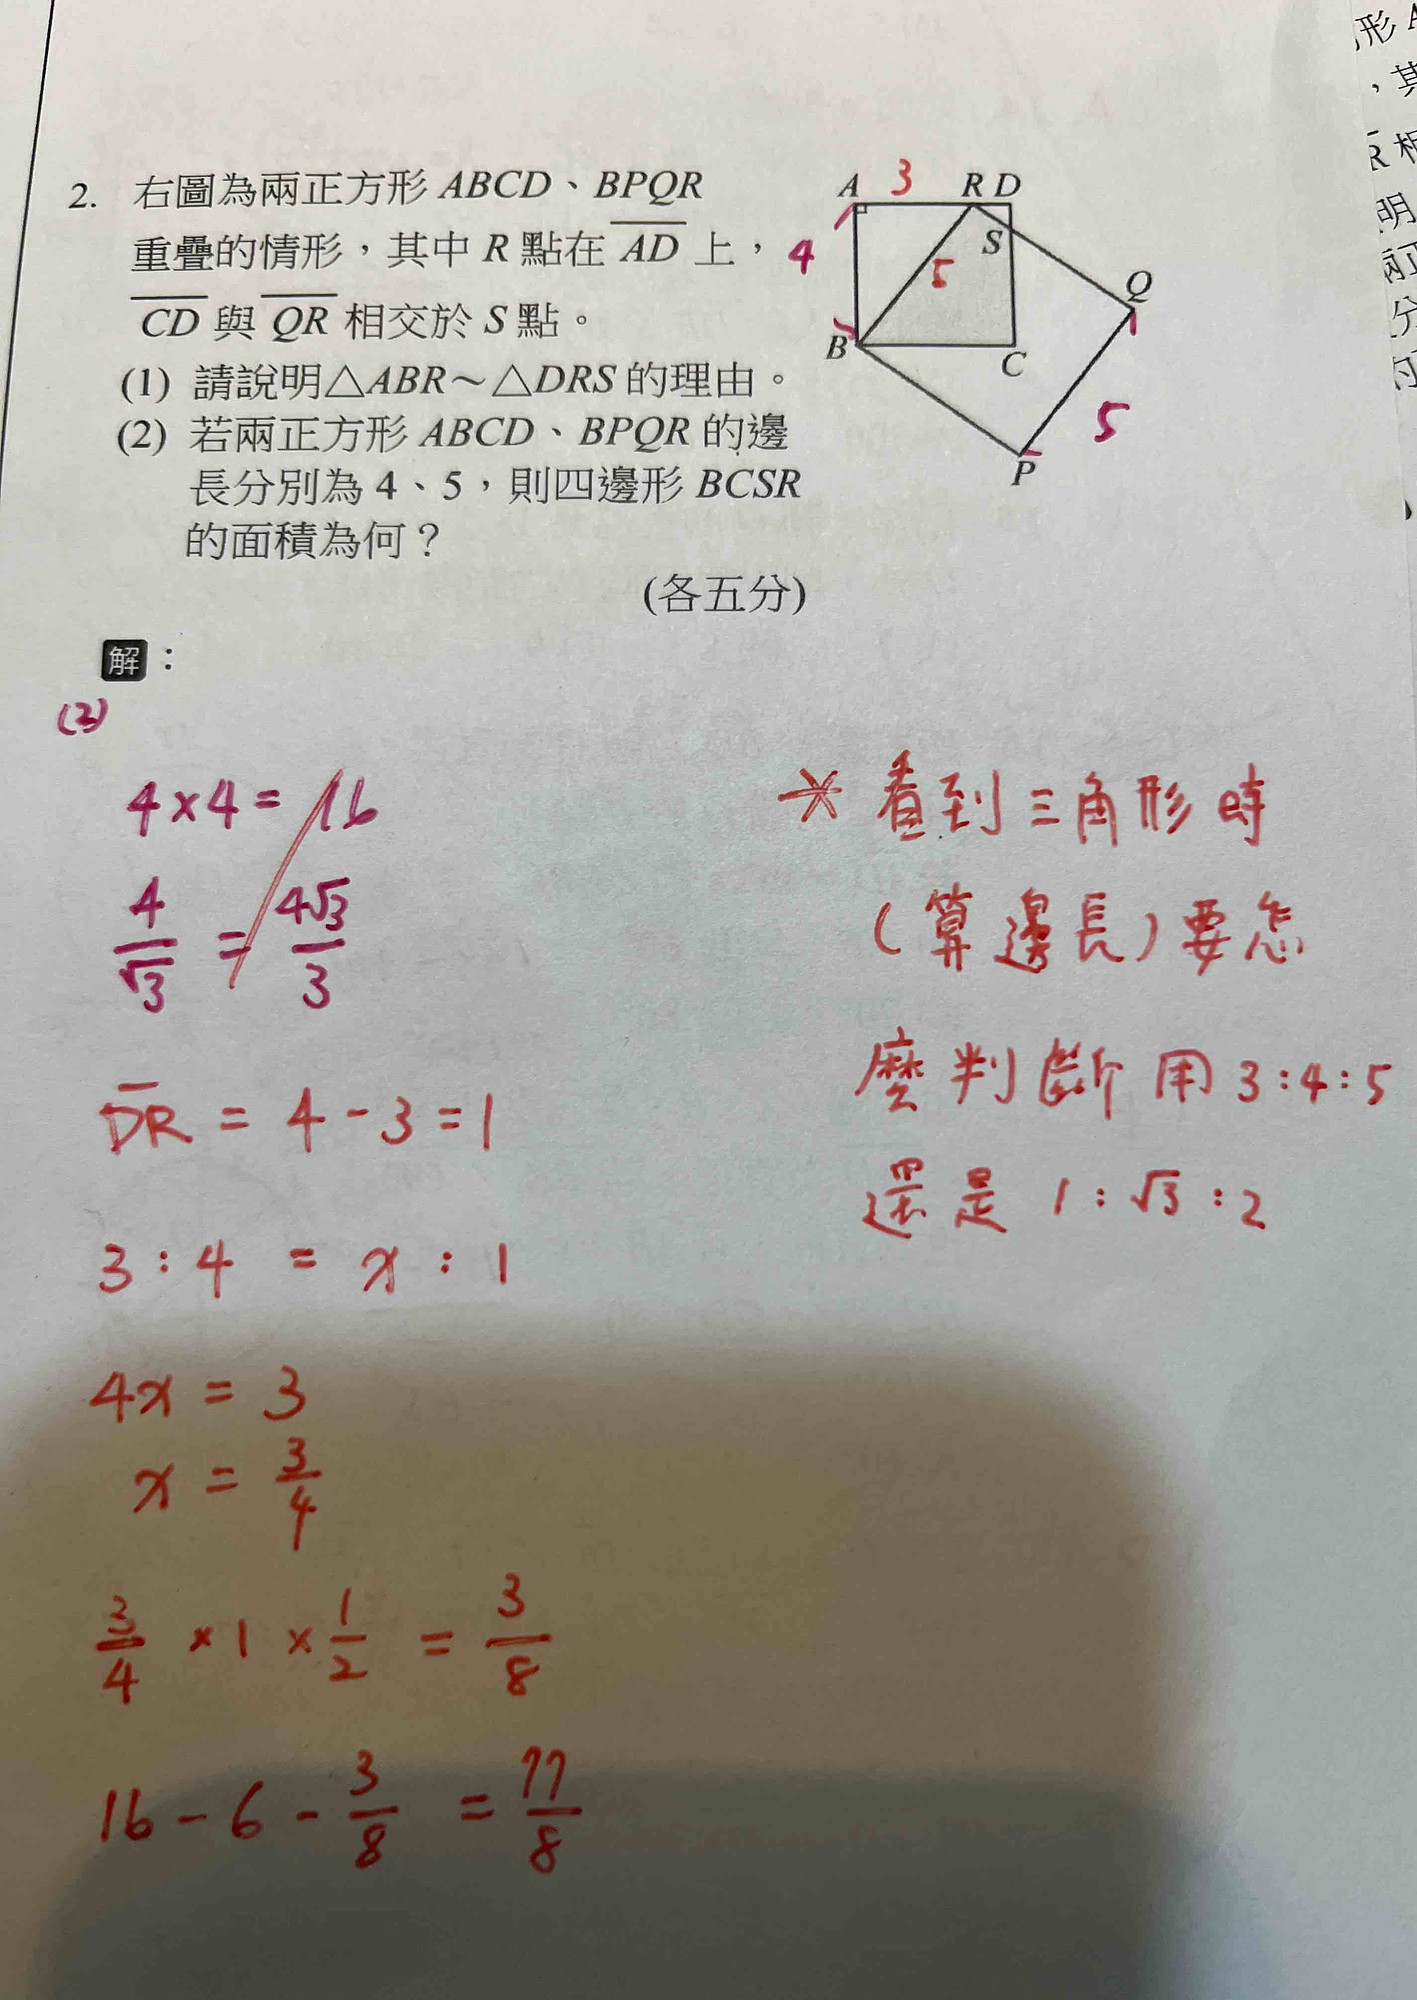 2. 右圖為兩正方形 ABCD、BPQR
重疊的情形，其中 R 點在 AD 上，
CD 與 QR 相交於 S 點。
(1) 請說明△ABR～△DRS 的理由。
(2) 若兩正方形 ABCD、BPQR 的邊
長分別為 4、5，則四邊形 BCSR
的面積為何？
(各五分)
A 3 R D
4
S
5
Q
B
C
5
P
解：
(2)
4×4=16
4/√3 = 4√3/3
DR = 4-3=1
3:4 = x:1
4x = 3
x = 3/4
3/4 ×1 × 1/2 = 3/8
16-6-3/8 = 77/8
* 看到三角形時
(算邊長)要怎
麼判斷用3:4:5
還是 1:√3:2
形 A
，其
R 相
明